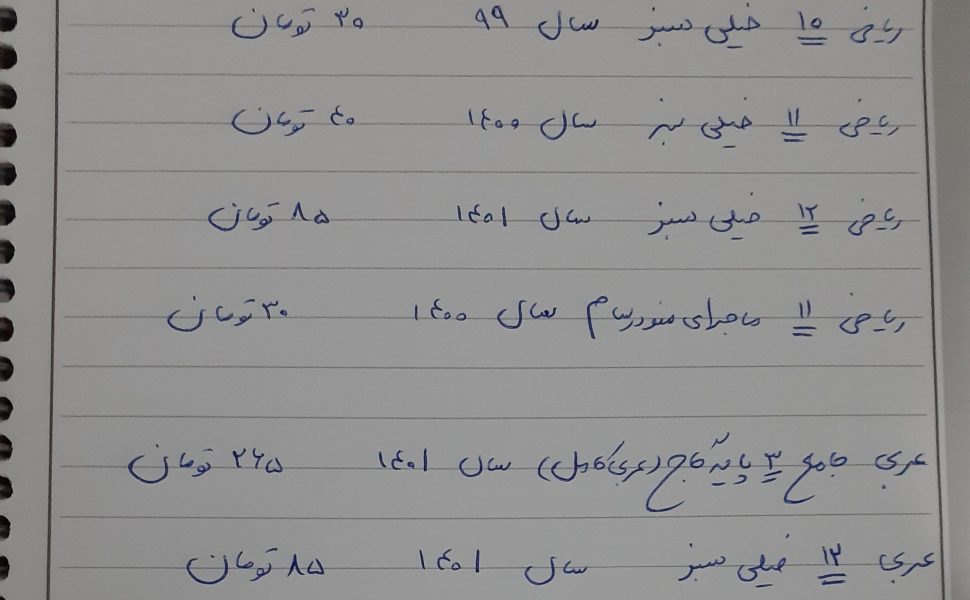 ریاضی ۱۰ خیلی سبز سال ۹۹ ۳۰ تومان
ریاضی ۱۱ خیلی سبز سال ۱۴۰۰ ۴۰ تومان
ریاضی ۱۲ خیلی سبز سال ۱۴۰۱ ۸۵ تومان
ریاضی ۱۱ ماجرای من و درسام سال ۱۴۰۰ ۳۰ تومان
عربی جامع ۳ پایه گاج (عربی کامل) سال ۱۴۰۱ ۲۶۵ تومان
عربی ۱۲ خیلی سبز سال ۱۴۰۱ ۸۵ تومان